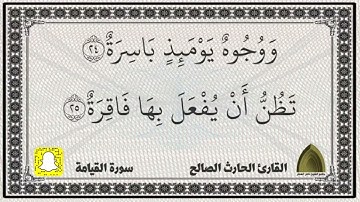 وَوُجُوهٌ يَوْمَئِذٍ بَاسِرَةٌ ٢٤
تَظُنُّ أَنْ يُفْعَلَ بِهَا فَاقِرَةٌ ٢٥
القارئ الحارث الصالح
سورة القيامة